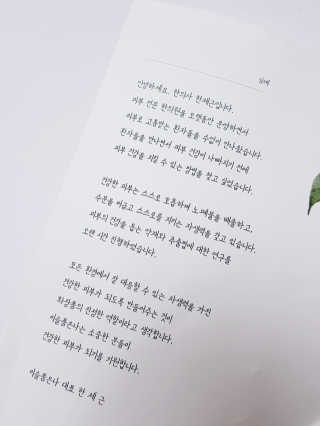 안녕하세요. 한의사 한세근입니다.
피부 전문 한의원을 오랫동안 운영하면서
피부로 고통받는 환자들을 수없이 만나왔습니다.
환자들을 만나면서 피부 건강이 나빠지기 전에
피부 건강을 지킬 수 있는 방법을 찾고 싶었습니다.
건강한 피부는 스스로 호흡하며 노폐물을 배출하고,
수분을 머금고 스스로를 지키는 자생력을 갖고 있습니다.
피부의 건강을 돕는 약재와 추출법에 대한 연구를
오랜 시간 진행하였습니다.
모든 환경에서 잘 대응할 수 있는 자생력을 가진
건강한 피부가 되도록 만들어주는 것이
화장품의 진정한 역할이라고 생각합니다.
이슬품은나는 소중한 분들이
건강한 피부가 되기를 기원합니다.
이슬품은나 대표 한 세 근